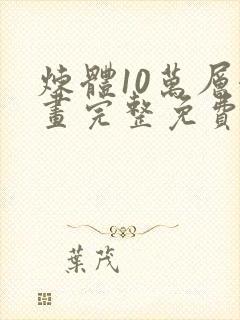 煉體10萬層
畫完整免費
葉茂